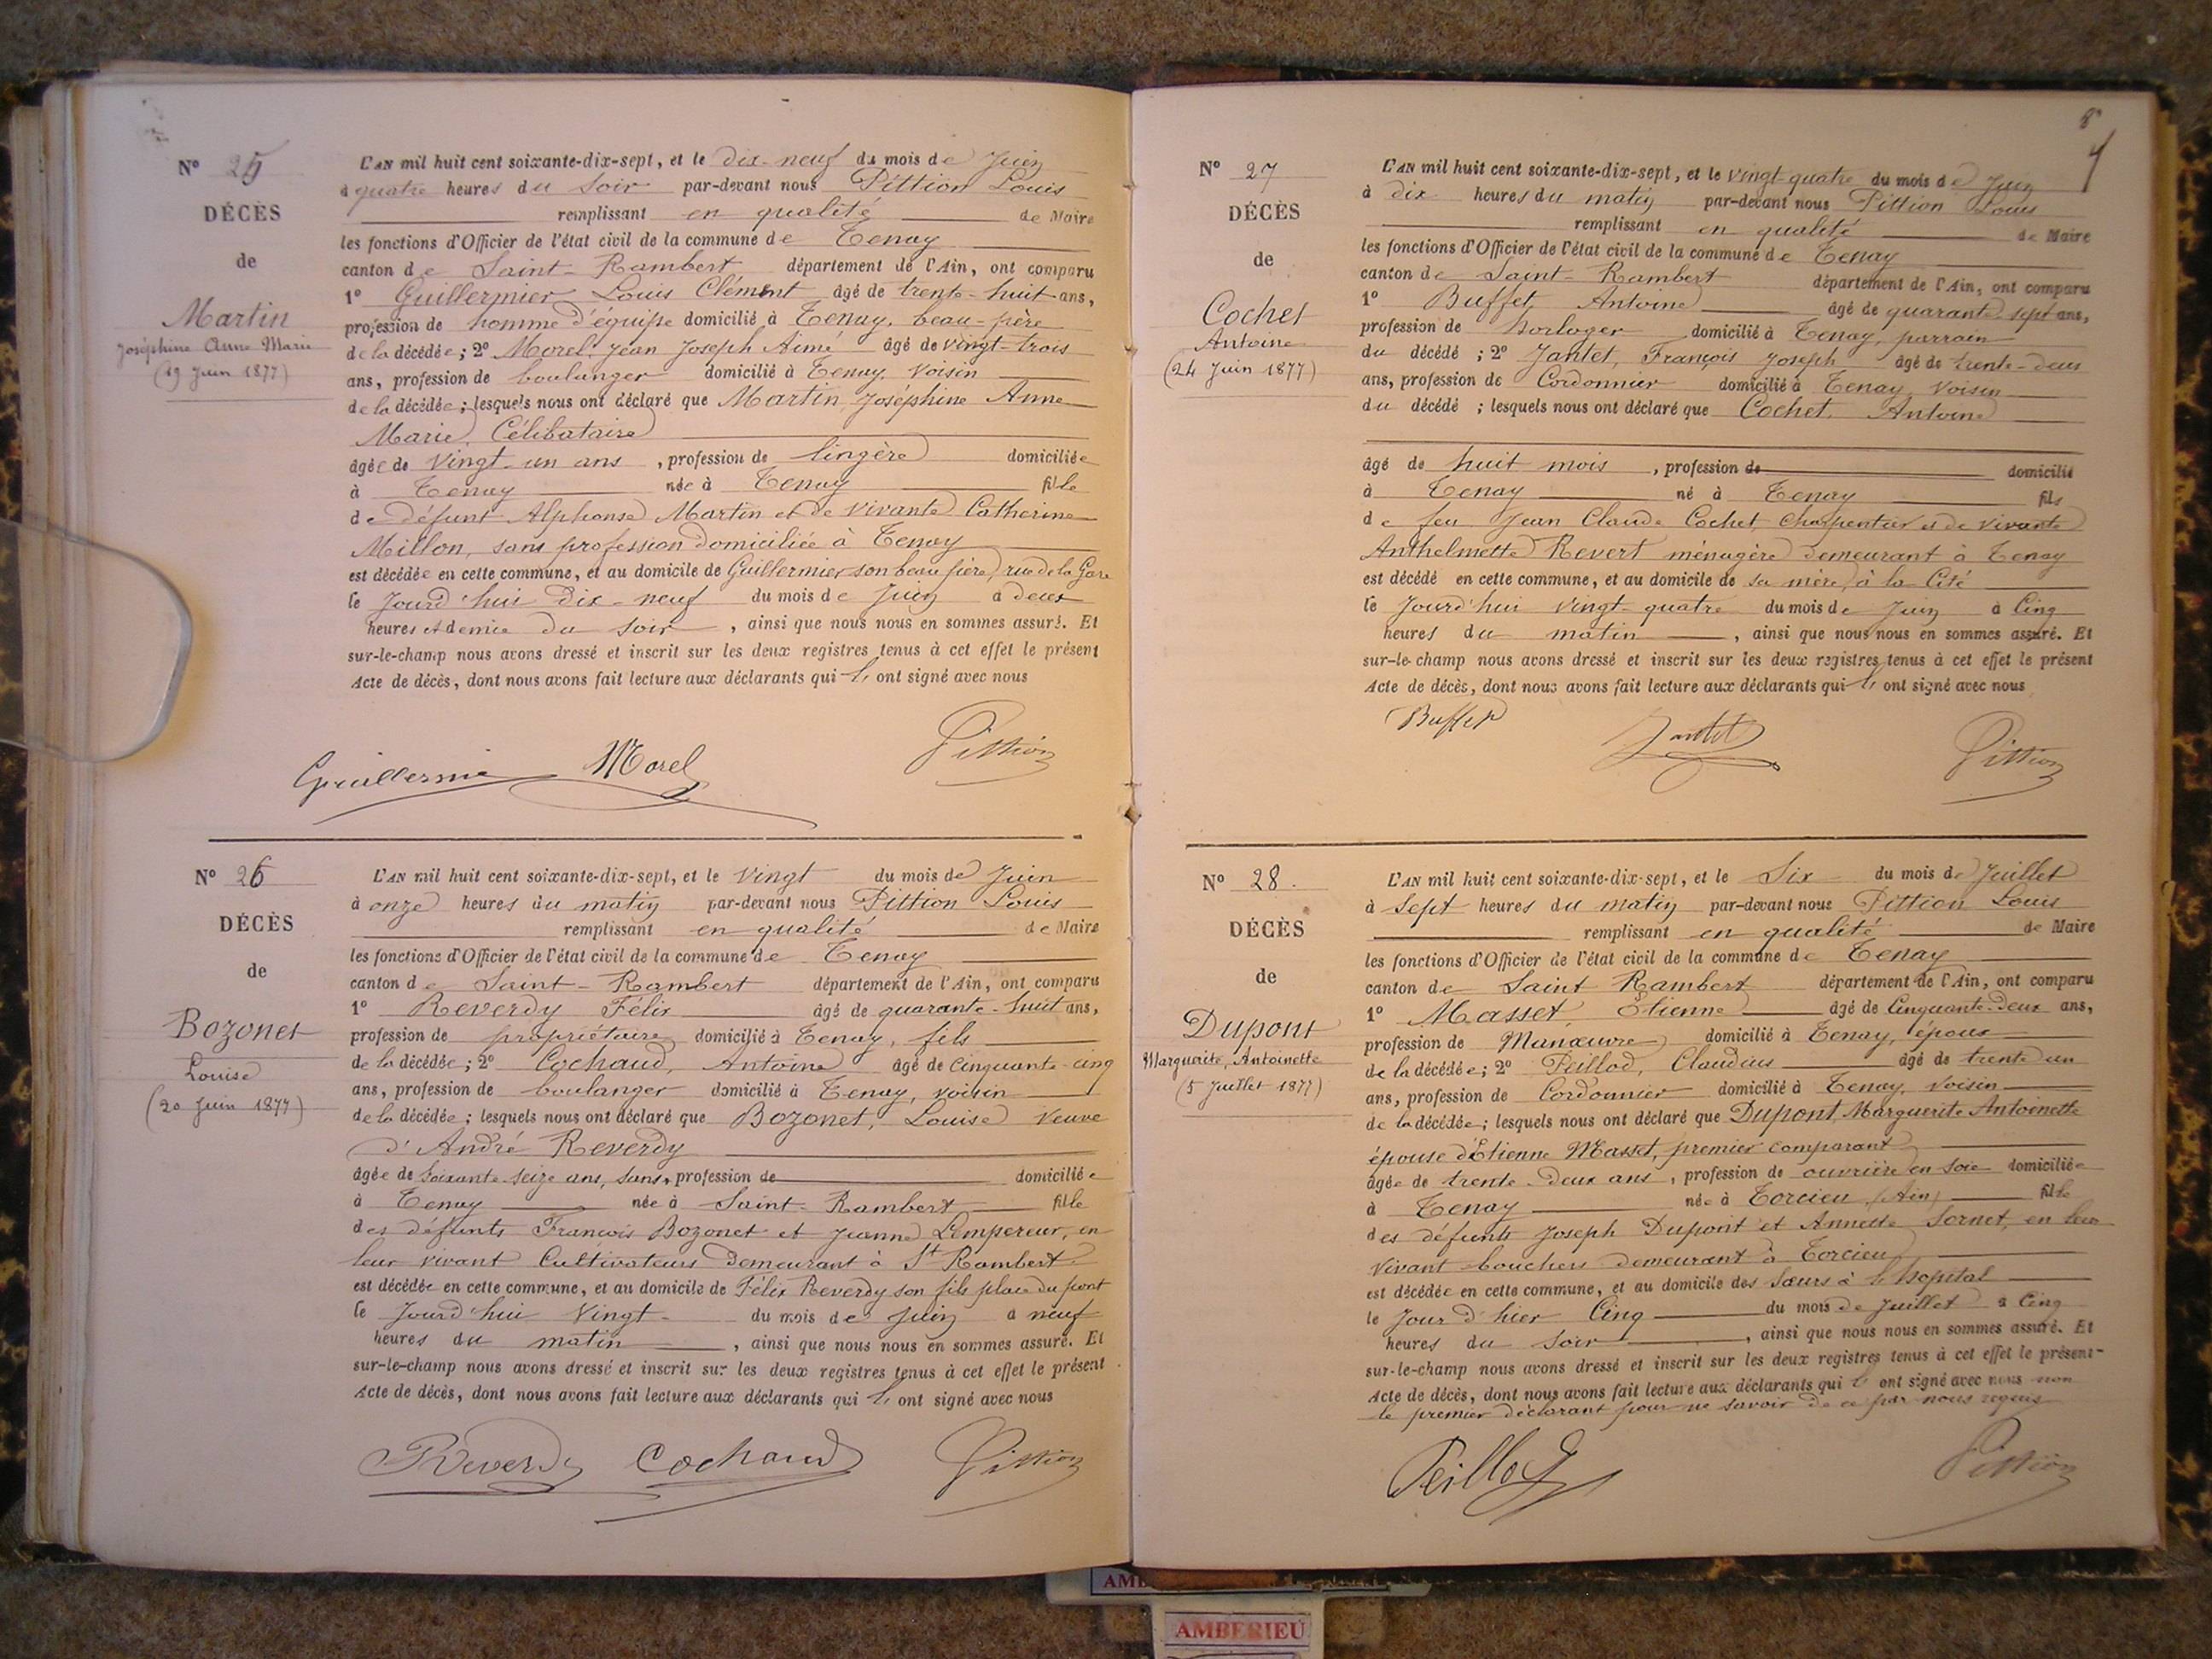 N° 25
DÉCÈS
de
Martin
Joséphine Anne Marie
(19 Juin 1877)
L'AN mil huit cent soixante-dix-sept, et le dix-neuf du mois de Juin
à quatre heures du soir par-devant nous Pittion Louis
remplissant en qualité de Maire
les fonctions d'Officier de l'état civil de la commune de Tenay
canton de Saint-Rambert département de l'Ain, ont comparu
1° Guillermier Louis Clément âgé de trente-huit ans,
profession de homme d'équipe domicilié à Tenay, beau-père
de la décédée; 2° Morel, Jean Joseph Aimé âgé de vingt-trois
ans, profession de boulanger domicilié à Tenay, voisin
de la décédée; lesquels nous ont déclaré que Martin Joséphine Anne
Marie, Célibataire
âgée de vingt-un ans, profession de lingère domiciliée
à Tenay née à Tenay fille
de défunt Alphonse Martin et de vivante Catherine
Millon, sans profession domiciliée à Tenay
est décédée en cette commune, et au domicile de Guillermier son beau père, rue de la Gare
le Jourd'hui dix-neuf du mois de Juin à deux
heures et demie du soir, ainsi que nous nous en sommes assuré. Et
sur-le-champ nous avons dressé et inscrit sur les deux registres tenus à cet effet le présent
Acte de décès, dont nous avons fait lecture aux déclarants qui l' ont signé avec nous
Guillermie Morel Pittion
N° 26
DÉCÈS
de
Bozonet
Louise
(20 Juin 1877)
L'AN mil huit cent soixante-dix-sept, et le vingt du mois de Juin
à onze heures du matin par-devant nous Pittion Louis
remplissant en qualité de Maire
les fonctions d'Officier de l'état civil de la commune de Tenay
canton de Saint-Rambert département de l'Ain, ont comparu
1° Reverdy Félix âgé de quarante-huit ans,
profession de propriétaire domicilié à Tenay, fils
de la décédée; 2° Cochaud, Antoine âgé de cinquante-cinq
ans, profession de boulanger domicilié à Tenay, voisin
de la décédée; lesquels nous ont déclaré que Bozonet, Louise veuve
d'André Reverdy
âgée de soixante-seize ans, sans, profession de domiciliée
à Tenay née à Saint-Rambert fille
des défunts François Bozonet et Jeanne Lempereur, en
leur vivant Cultivateurs demeurant à St Rambert
est décédée en cette commune, et au domicile de Félix Reverdy son fils place du pont
le Jourd'hui vingt du mois de Juin à neuf
heures du matin, ainsi que nous nous en sommes assuré. Et
sur-le-champ nous avons dressé et inscrit sur les deux registres tenus à cet effet le présent
Acte de décès, dont nous avons fait lecture aux déclarants qui l' ont signé avec nous
Reverdy Cochaud Pittion
8
N° 27
DÉCÈS
de
Cochet
Antoine
(24 Juin 1877)
L'AN mil huit cent soixante-dix-sept, et le vingt-quatre du mois de Juin
à dix heures du matin par-devant nous Pittion Louis
remplissant en qualité de Maire
les fonctions d'Officier de l'état civil de la commune de Tenay
canton de Saint-Rambert département de l'Ain, ont comparu
1° Buffet, Antoine âgé de quarante-sept ans,
profession de horloger domicilié à Tenay, parrain
du décédé; 2° Jantet, François Joseph âgé de trente-deux
ans, profession de Cordonnier domicilié à Tenay, voisin
du décédé; lesquels nous ont déclaré que Cochet, Antoine
âgé de huit mois, profession de domicilié
à Tenay né à Tenay fils
de feu Jean Claude Cochet charpentier et de vivante
Anthelmette Revert ménagère demeurant à Tenay
est décédé en cette commune, et au domicile de sa mère, à la Cité
le Jourd'hui vingt-quatre du mois de Juin à Cinq
heures du matin, ainsi que nous nous en sommes assuré. Et
sur-le-champ nous avons dressé et inscrit sur les deux registres tenus à cet effet le présent
Acte de décès, dont nous avons fait lecture aux déclarants qui l' ont signé avec nous
Buffet Jantet Pittion
N° 28.
DÉCÈS
de
Dupont
Marguerite, Antoinette
(5 Juillet 1877)
L'AN mil huit cent soixante-dix-sept, et le Six du mois de Juillet
à Sept heures du matin par-devant nous Pittion Louis
remplissant en qualité de Maire
les fonctions d'Officier de l'état civil de la commune de Tenay
canton de Saint Rambert département de l'Ain, ont comparu
1° Masset, Etienne âgé de Cinquante-deux ans,
profession de Manœuvre domicilié à Tenay, époux
de la décédée; 2° Peillod, Claudius âgé de trente un
ans, profession de Cordonnier domicilié à Tenay, voisin
de la décédée; lesquels nous ont déclaré que Dupont, Marguerite Antoinette
épouse d'Etienne Masset, premier comparant
âgée de trente-deux ans, profession de ouvrière en soie domiciliée
à Tenay née à Torcieu (Ain) fille
des défunts Joseph Dupont et Annette Sornet, en leur
vivant bouchers demeurant à Torcieu
est décédée en cette commune, et au domicile des Sœurs à l'hôpital
le Jour d'hier Cinq du mois de Juillet à Cinq
heures du soir, ainsi que nous nous en sommes assuré. Et
sur-le-champ nous avons dressé et inscrit sur les deux registres tenus à cet effet le présent
Acte de décès, dont nous avons fait lecture aux déclarants qui l' ont signé avec nous non
le premier déclarant pour ne savoir de ce par nous requis
Peillod Pittion
AMBERIEU